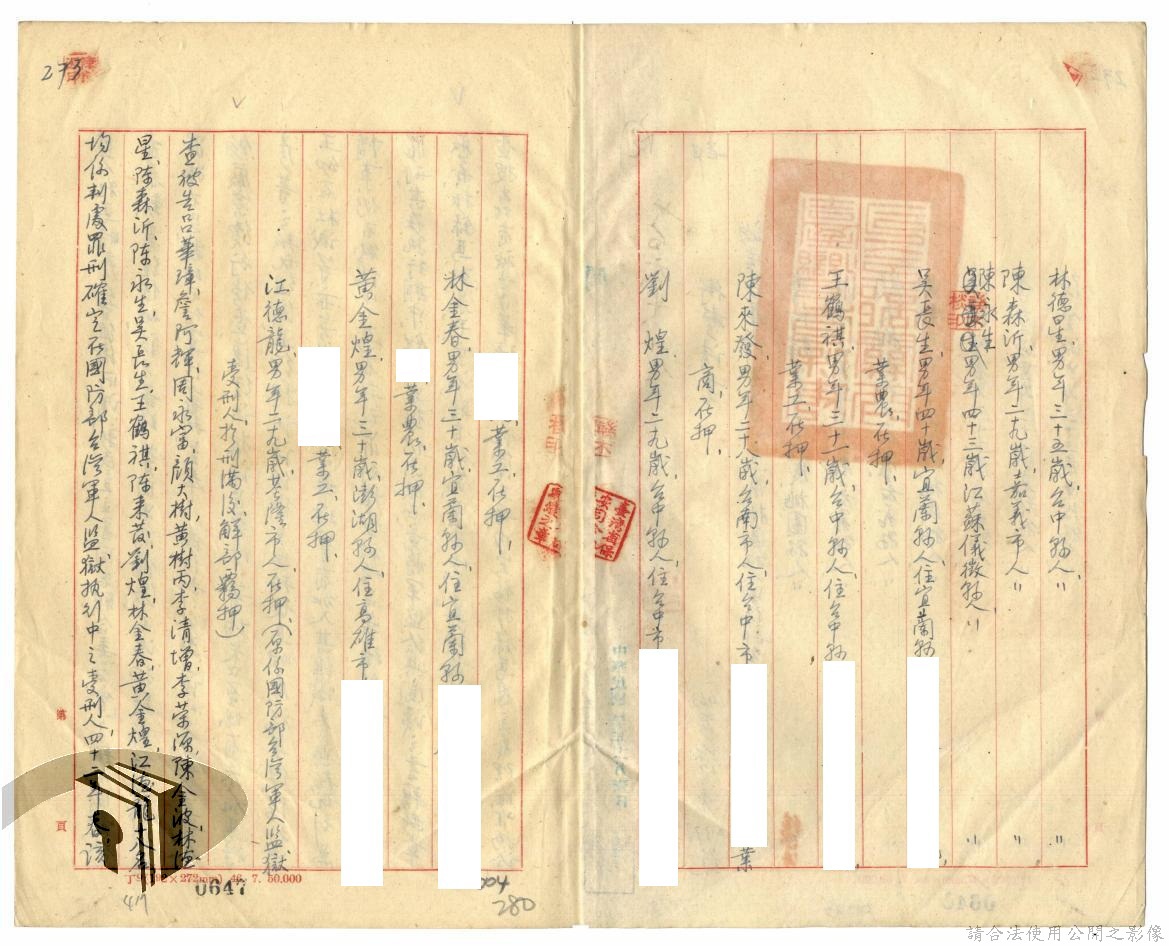 林德星,男,年三十五歲,台中縣人,〃 〃
陳森沂,男,年二九歲,嘉義市人,〃 〃
陳永生
男,年四十三歲,江蘇儀徵縣人,〃 〃
吳長生,男,年四十歲,宜蘭縣人,住宜蘭縣
業農,在押,
王鶴祺,男,年三十一歲,台中縣人,住台中縣
業工,在押,
陳來發,男,年二十九歲,台南市人,住台中市 業
商,在押,
劉煌,男,年二九歲,台中縣人,住台中市
臺灣省保安司令部
林金春,男,年三十歲,宜蘭縣人,住宜蘭縣
業工,在押,
黃金煌,男,年三十歲,澎湖縣人,住高雄市
業農,在押,
江德龍,男,年二九歲,基隆市人,在押,(原係國防部台灣軍人監獄
業工,在押,
受刑人,於刑滿後,解部羈押)
查被告呂華璋,詹阿輝,周永富,顏大樹,黃樹丙,李清增,李榮源,陳金波,林德
星,陳森沂,陳永生,吳長生,王鶴祺,陳來發,劉煌,林金春,黃金煌,江德龍十八名
均係判處罪刑確定,在國防部台灣軍人監獄執行中之受刑人,四十二年春,該
273
第 頁
(192×272mm) 46. 7. 50,000
0647
417
004
280
請合法使用公開之影像